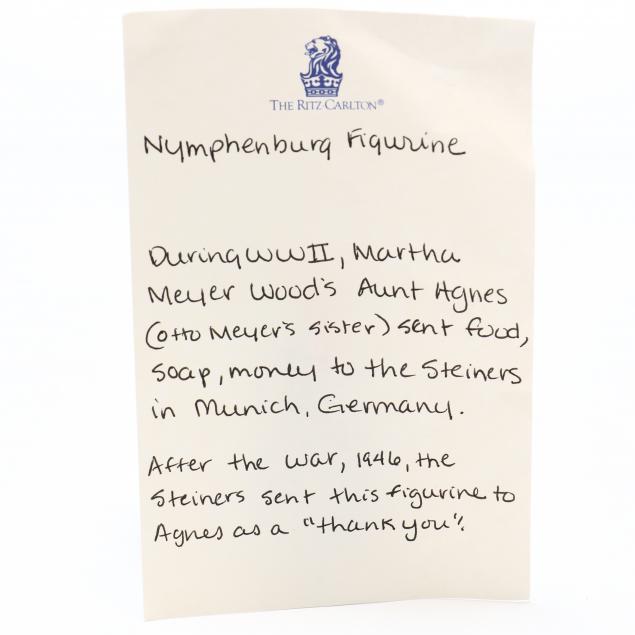 THE RITZ-CARLTON®
Nymphenburg Figurine
During WWII, Martha
Meyer Wood's Aunt Agnes
(Otto Meyer's sister) sent food,
soap, money to the Steiners
in Munich, Germany.
After the war, 1946, the
Steiners sent this figurine to
Agnes as a "thank you".